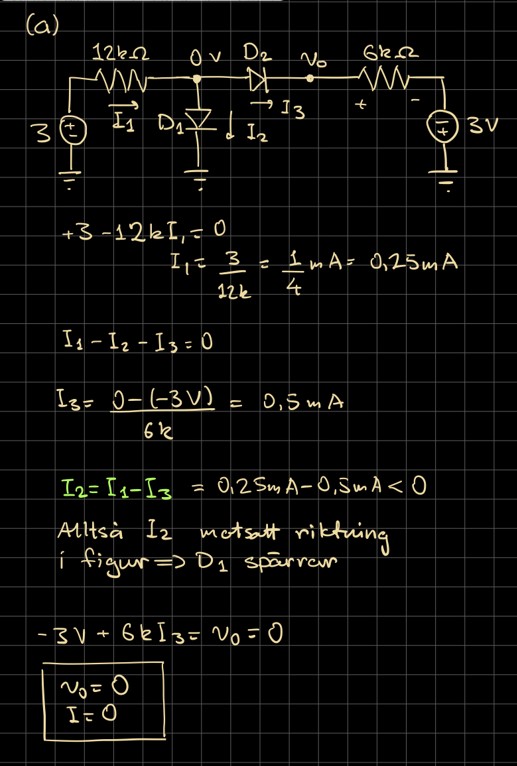 (a)
12kΩ 0 V D2 v₀ 6kΩ
+ -
3 I₁ D1 I₂ I₃ 3V
+3 -12kI₁ = 0
I₁ = 3/12k = 1/4 mA = 0,25mA
I₁ - I₂ - I₃ = 0
I₃ = 0-(-3V)/6k = 0,5mA
I₂ = I₁ - I₃ = 0,25mA - 0,5mA < 0
Alltså I₂ motsatt riktning
i figur => D₁ spärrar
-3V + 6kI₃ = v₀ = 0
v₀ = 0
I = 0